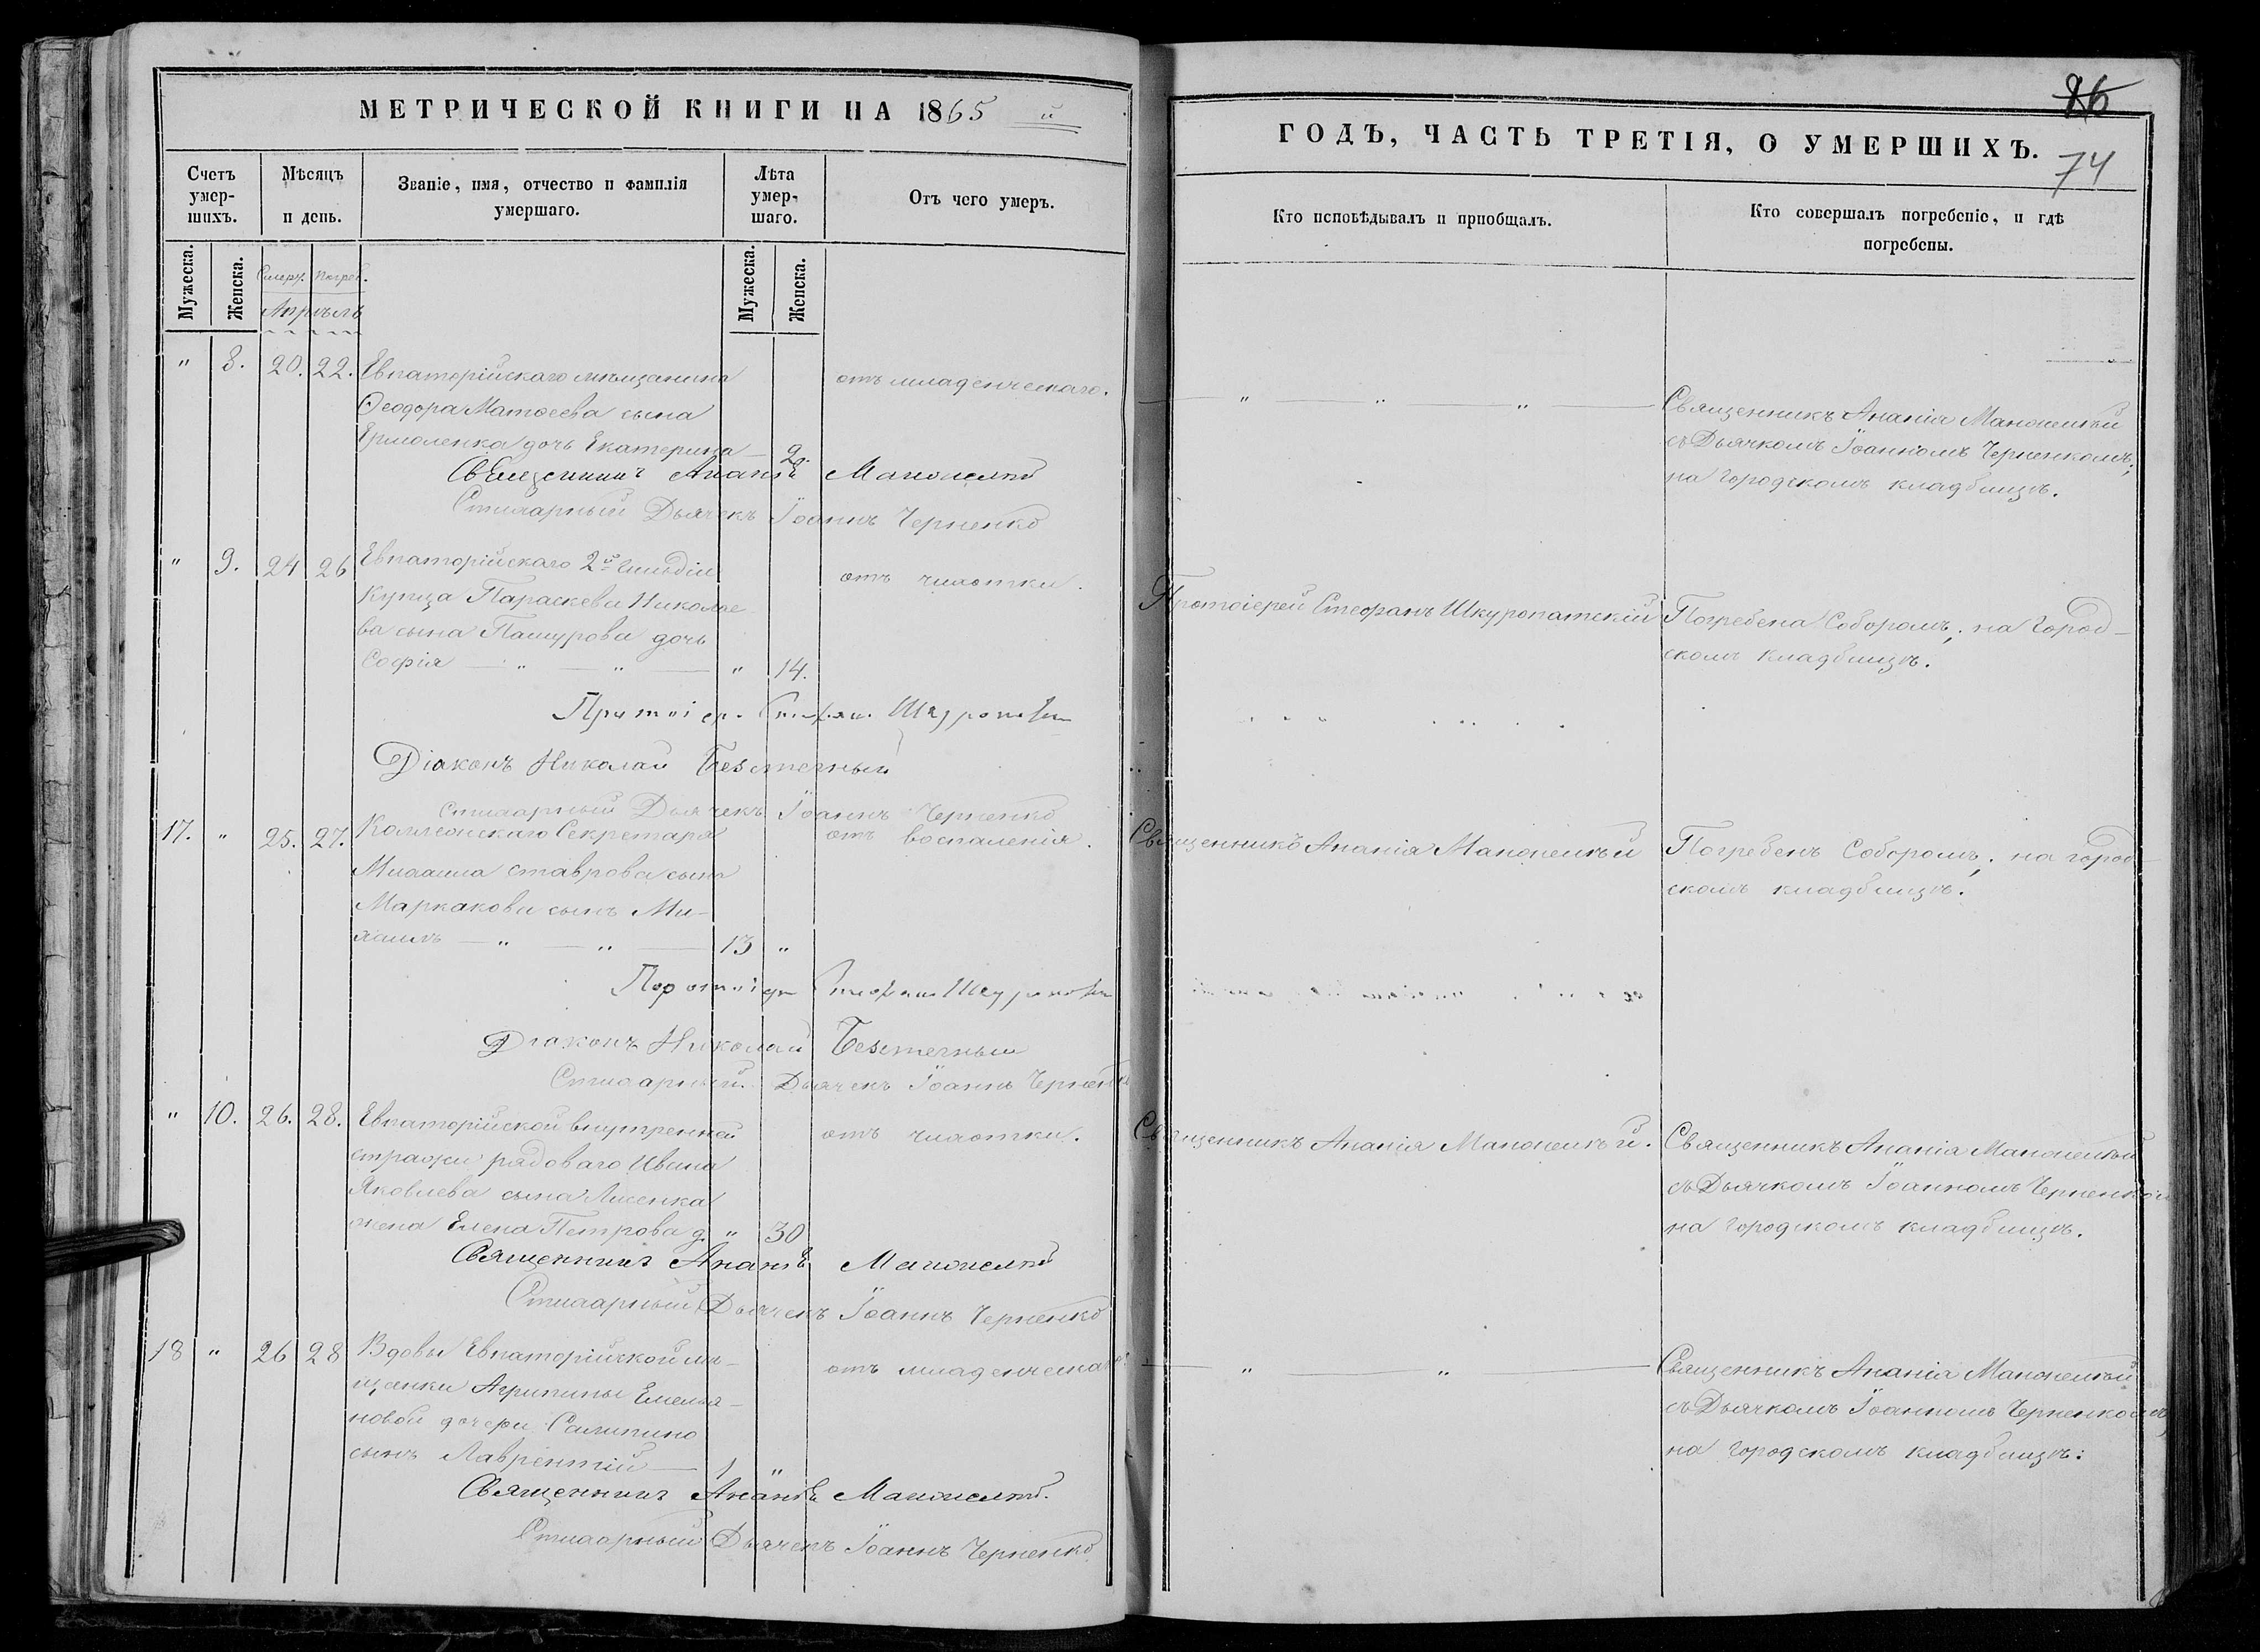 МЕТРИЧЕСКОЙ КНИГИ НА 1865 й
Счетъ умер-шихъ.
Мѣсяцъ и день.
Званіе, имя, отчество и фамилія умершаго.
Лѣта умер-шаго.
Отъ чего умеръ.
Мужеска.
Женска.
Смерт. Погреб.
Апрѣль
Мужеска.
Женска.
" 8. 20. 22. Евпаторійскаго мѣщанина отъ младенческаго.
Ѳеодора Матѳеева сына
Ермоленка дочь Екатерина — 2.
Священникъ Ананія
Стихарный Дьячекъ Іоаннъ Черненко
" 9. 24 26 Евпаторійскаго 2й Гильдіи отъ чихотки.
Купца Параскева Николае-
ва сына Пашурова дочь
Софія — " — " — " 14.
Протоіер. Стефан. Шкуропат
Діаконъ Николай
Стихарный Дьячекъ Іоаннъ Черненко
17. " 25. 27. Коллежскаго Секретаря отъ воспаленія.
Михаила Ставрова сына
Маркакова сынъ Ми-
хаилъ — " — " — 13 "
Діаконъ Николай
Стихарный Дьячекъ Іоаннъ Черненко
" 10. 26. 28. Евпаторійской внутренней отъ чихотки.
стражи рядоваго Ивана
Яковлева сына Лисенка
жена Елена Петрова д. " 30
Священникъ Ананія
Стихарный Дьячекъ Іоаннъ Черненко
18 " 26 28 Вдовы Евпаторійской мѣ-
щанки Агрипины Емелья- отъ младенческаго.
новой дочери
сынъ Лаврентій — 1 "
Священникъ Ананія
Стихарный Дьячекъ Іоаннъ Черненко
86
ГОДЪ, ЧАСТЬ ТРЕТІЯ, О УМЕРШИХЪ.
74
Кто исповѣдывалъ и пріобщалъ.
Кто совершалъ погребеніе, и гдѣ погребены.
— " — " — " — Священникъ Ананія
съ Дьячкомъ Іоанномъ Черненкомъ,
на Городскомъ кладбищѣ.
Протоіерей Стефанъ Шкуропатскій Погребена Соборомъ, на Город-
скомъ кладбищѣ.
Священникъ Ананія Погребенъ Соборомъ, на город-
скомъ кладбищѣ.
Священникъ Ананія Священникъ Ананія
съ Дьячкомъ Іоанномъ Черненкомъ
на Городскомъ кладбищѣ.
— " — " — Священникъ Ананія
съ Дьячкомъ Іоанномъ Черненкомъ,
на Городскомъ кладбищѣ.